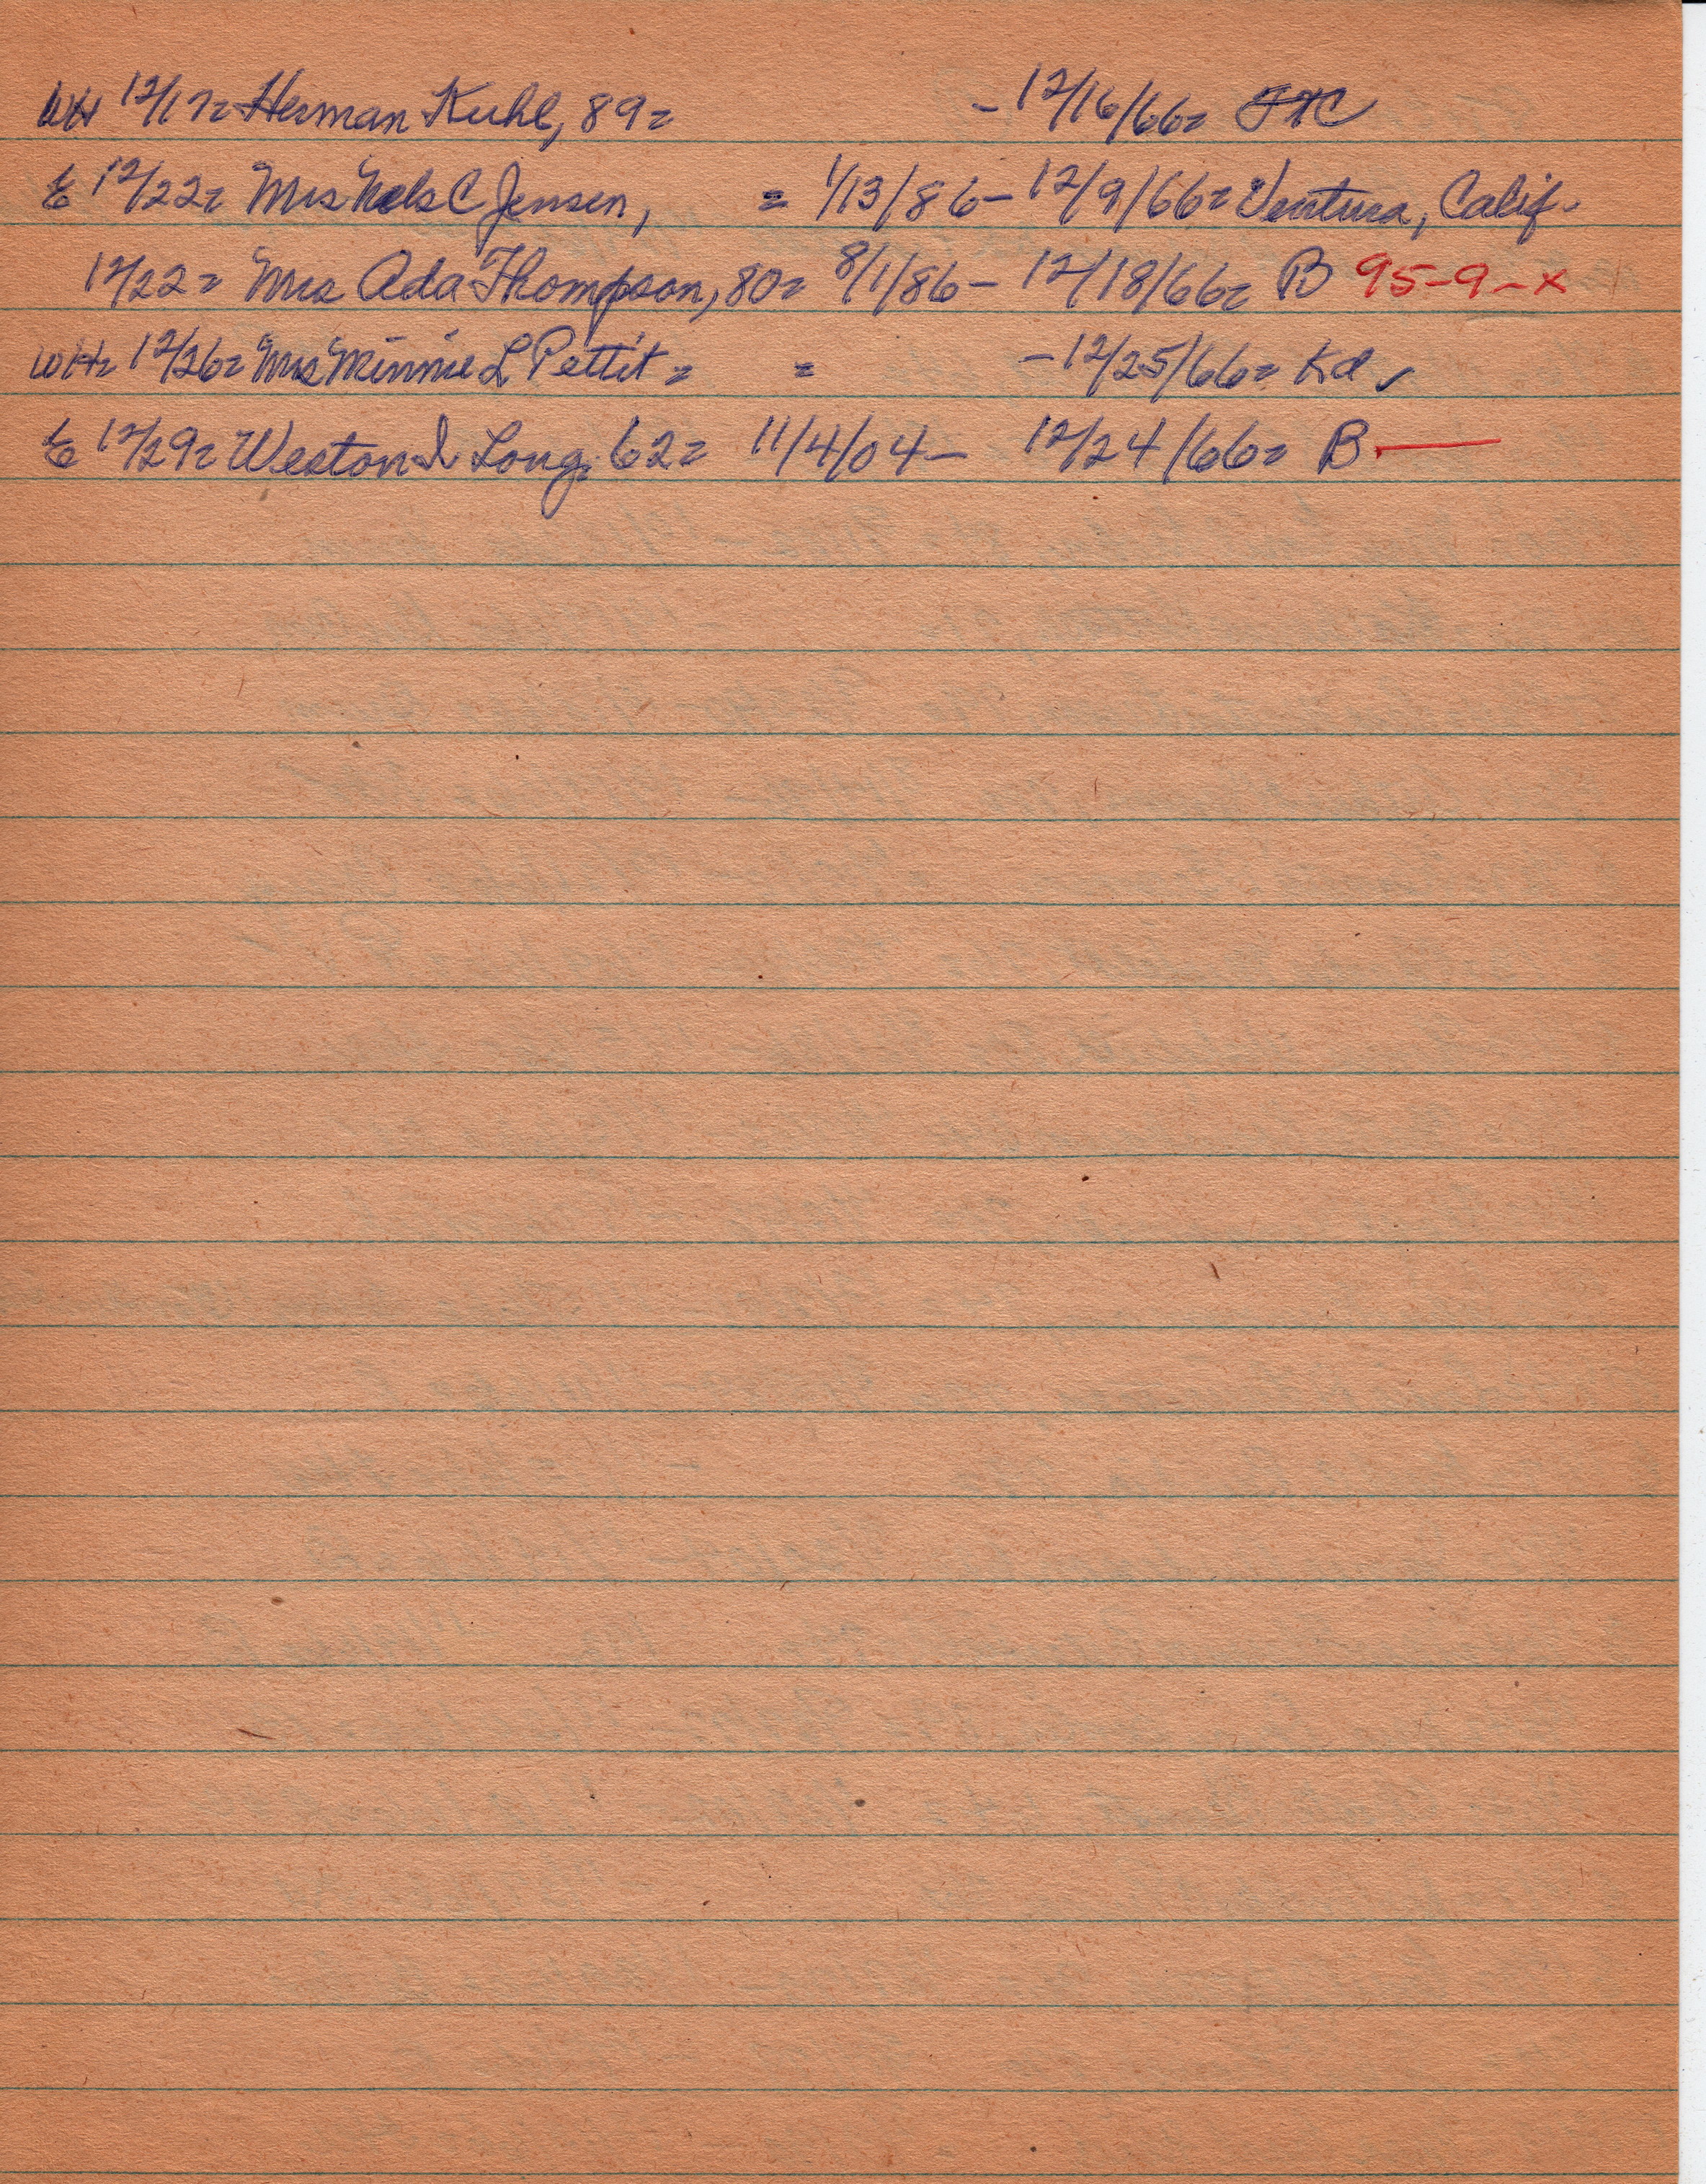 WH 12/17= Herman Kuhl, 89= - 12/16/66= JTC
E 12/22= Mrs Nels C Jensen, = 1/13/86 - 12/9/66= Ventura, Calif.
12/22= Mrs Ada Thompson, 80= 8/1/86 - 12/18/66= B 95-9-x
WH= 12/26= Mrs Minnie L Pettit = = - 12/25/66= Kd ✓
E 12/29= Weston I Long, 62= 11/4/04 - 12/24/66= B —